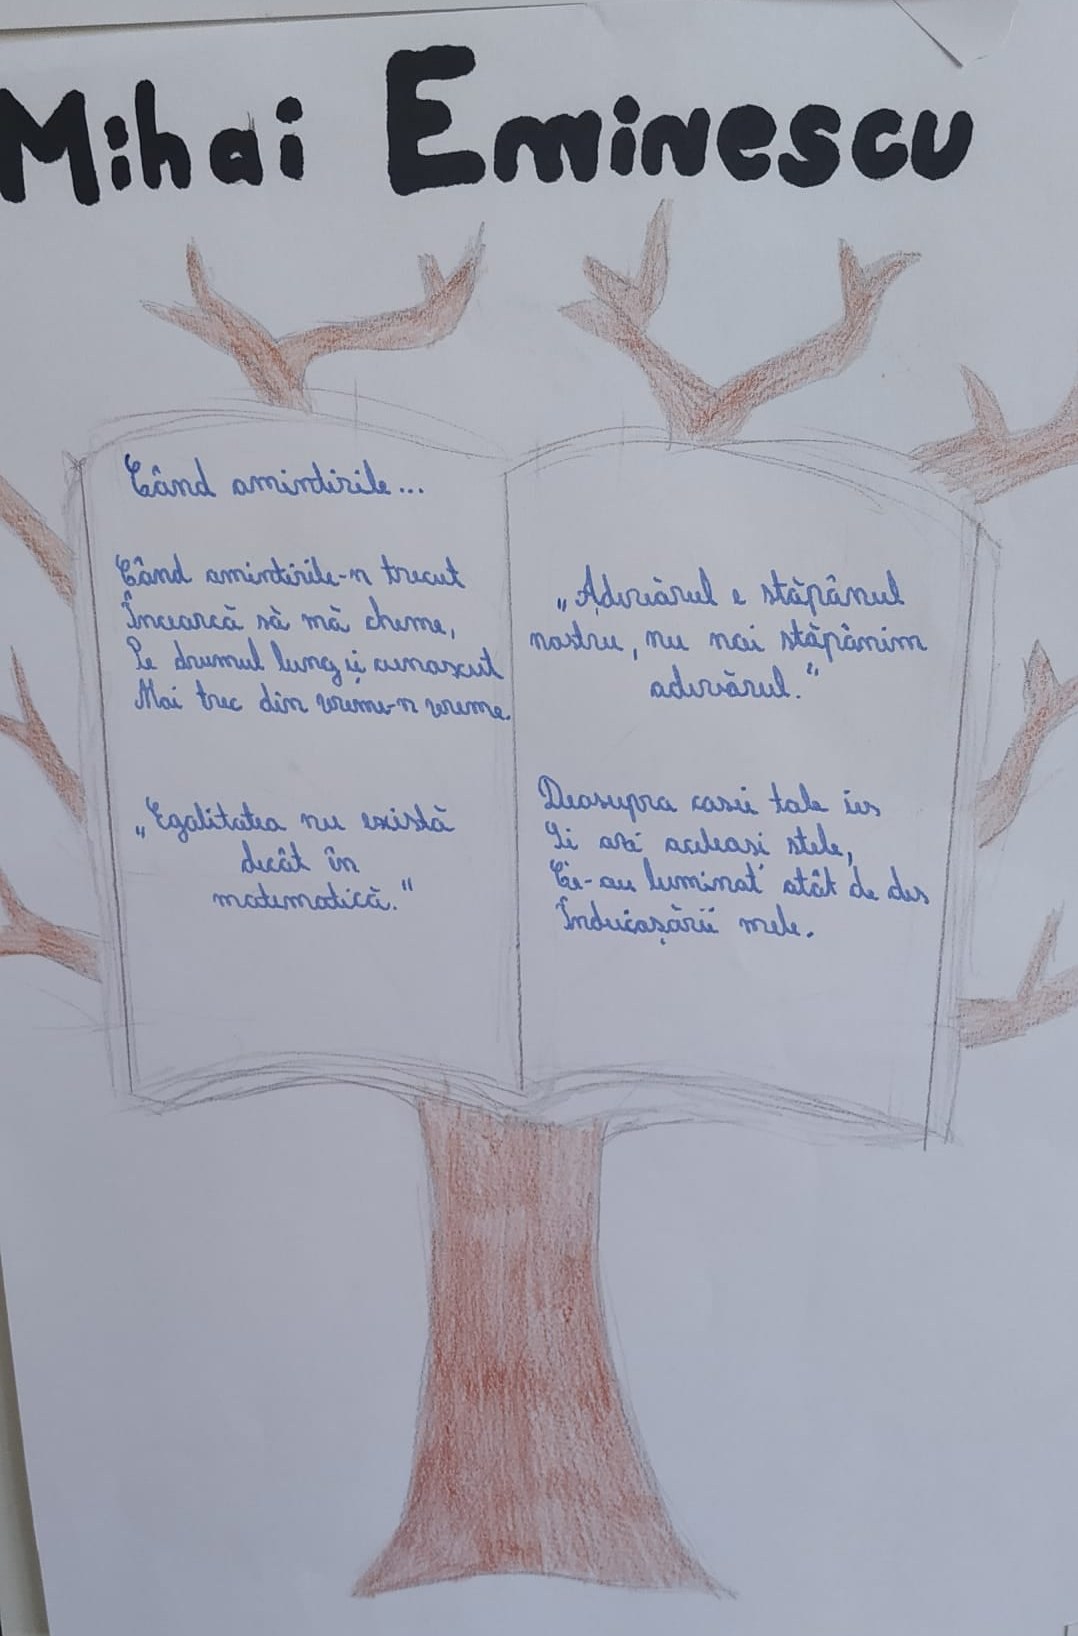 Mihai Eminescu
Când amintirile...
Când amintirile-n trecut
Încearcă să mă cheme,
Pe drumul lung și cunoscut
Mai trec din vreme-n vreme.
„Egalitatea nu există
decât în
matematică."
„Adevărul e stăpânul
nostru, nu noi stăpânim
adevărul."
Deasupra casei tale ies
Și azi aceleași stele,
Ce-au luminat atât de des
Înduioșării mele.